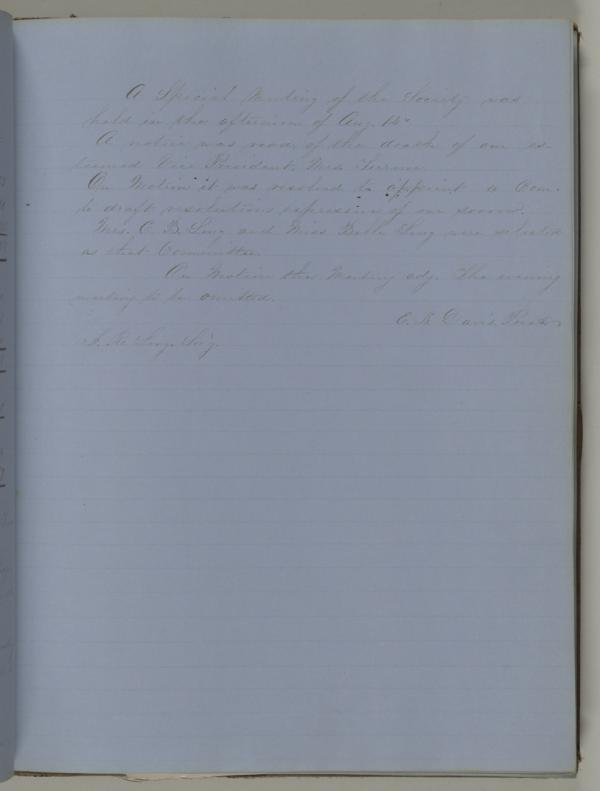 A Special Meeting of the Society was
held in the afternoon of Aug. 14th
A notice was read of the death of our es-
teemed Vice President, Mrs.
On Motion it was resolved to appoint a Com.
to draft resolutions expressive of our sorrow.
Mrs. C. B. Ling and Miss Belle Ling were selected
as that Committee.
On Motion the Meeting adj. The evening
meeting to be omitted.
C. K. Davis
Ling Sec'y.